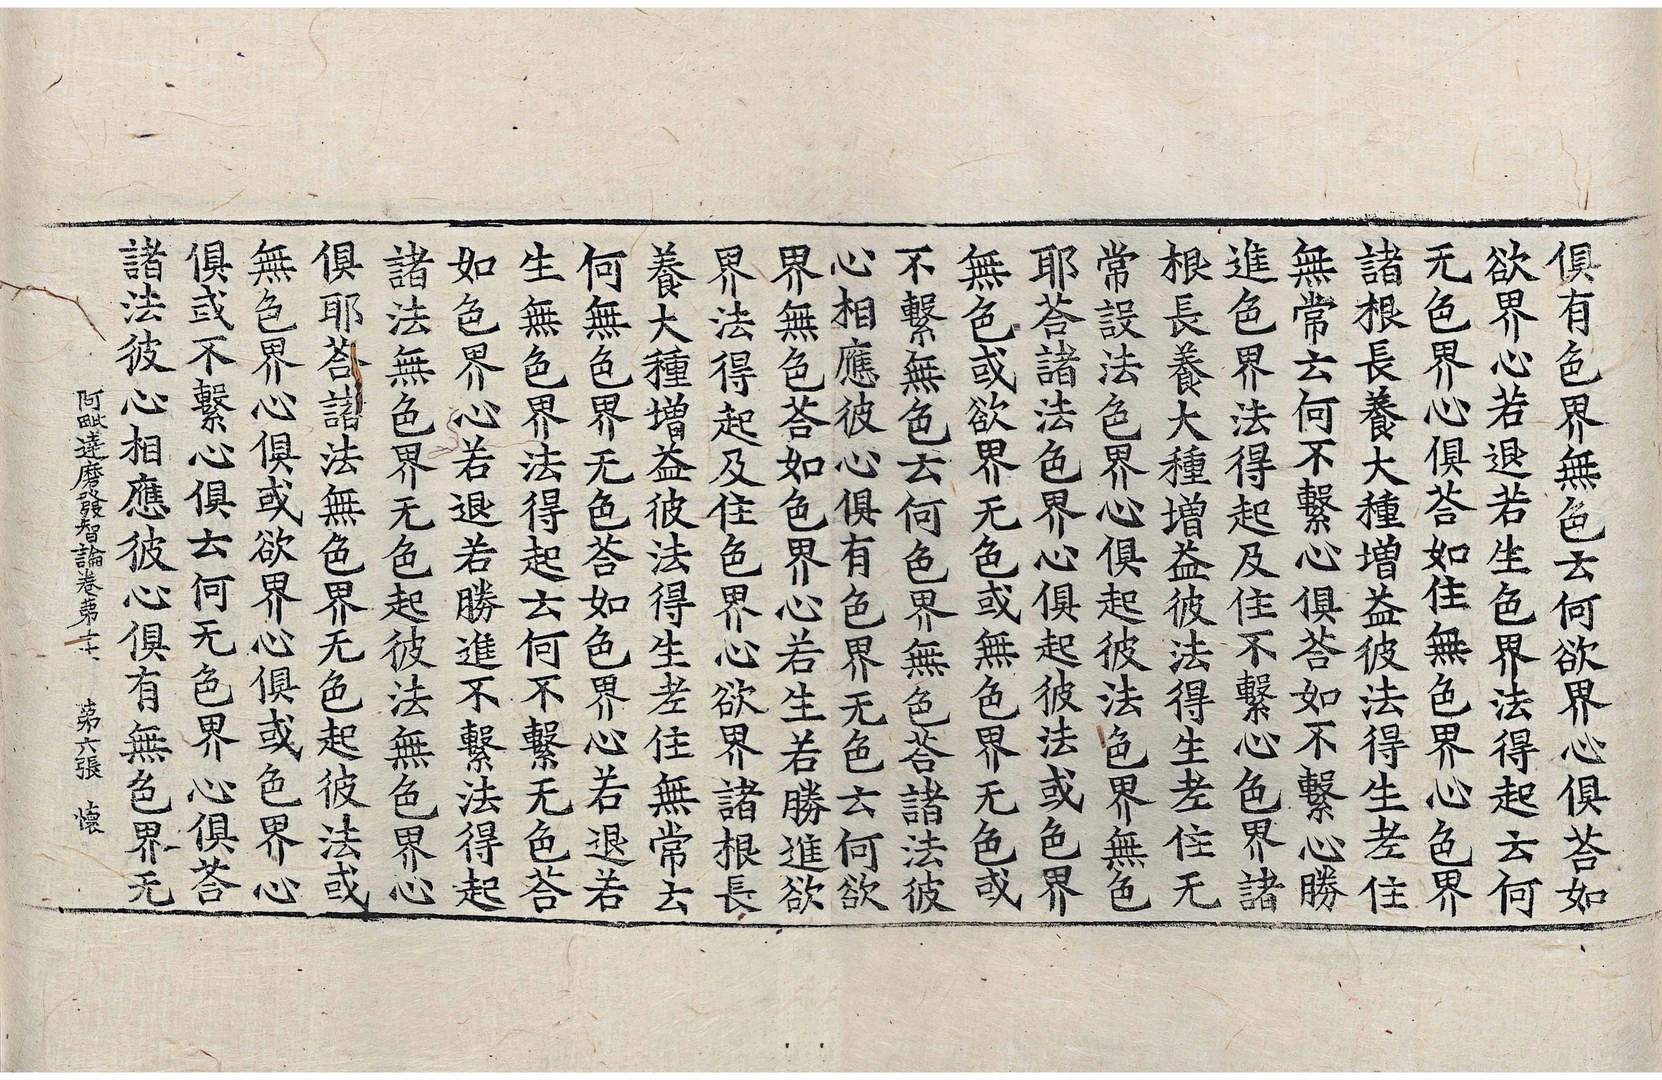 俱有色界無色云何欲界心俱荅如
欲界心若退若生色界法得起云何
无色界心俱荅如住無色界心色界
諸根長養大種增益彼法得生老住
無常云何不繫心俱荅如不繫心勝
進色界法得起及住不繫心色界諸
根長養大種增益彼法得生老住无
常設法色界心俱起彼法色界無色
耶荅諸法色界心俱起彼法或色界
無色或欲界无色或無色界无色或
不繫無色云何色界無色荅諸法彼
心相應彼心俱有色界无色云何欲
界無色荅如色界心若生若勝進欲
界法得起及住色界心欲界諸根長
養大種增益彼法得生老住無常云
何無色界无色荅如色界心若退若
生無色界法得起云何不繫无色荅
如色界心若退若勝進不繫法得起
諸法無色界无色起彼法無色界心
俱耶荅諸法無色界无色起彼法或
無色界心俱或欲界心俱或色界心
俱或不繫心俱云何无色界心俱荅
諸法彼心相應彼心俱有無色界无
阿毗達磨發智論卷第 第六張 懷